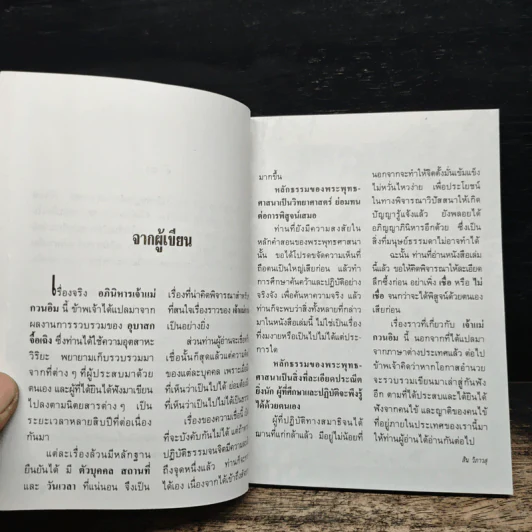 จากผู้เขียน
เรื่องจริง อภินิหารเจ้าแม่
กวนอิม นี้ ข้าพเจ้าได้แปลมาจาก
ผลงานการรวบรวมของ อุบาสก
จื้อเฉิง ซึ่งท่านได้ใช้ความอุตสาหะ
วิริยะ พยายามเก็บรวบรวมมา
จากที่ต่าง ๆ ที่ผู้ประสบมาด้วย
ตนเอง และผู้ที่ได้ยินได้ฟังมาเขียน
ไปลงตามนิตยสารต่าง ๆ เป็น
ระยะเวลาหลายสิบปีที่ต่อเนื่อง
กันมา
แต่ละเรื่องล้วนมีหลักฐาน
ยืนยันได้ มี ตัวบุคคล สถานที่
และ วันเวลา ที่แน่นอน จึงเป็น
เรื่องที่น่าคิดพิจารณา
ที่สนใจเรื่องราวของ
เป็นอย่างยิ่ง
ส่วนท่านผู้อ่านจะเชื่อ
เชื่อนั้นก็สุดแล้วแต่ความ
แต่ละบุคคล เพราะเมื่อ
ที่เห็นว่าเป็นไปได้ ย่อม
ที่เห็นว่าเป็นไปไม่ได้
เรื่องของความเชื่อนี้
ที่จะบังคับกันไม่ได้ แต่ถ้า
ปฏิบัติธรรมจนจิตมีความ
ถึงจุดหนึ่งแล้ว ท่านก็จะ
ได้เอง เนื่องจากได้เข้าถึง
มากขึ้น
หลักธรรมของพระพุทธ-
ศาสนาเป็นวิทยาศาสตร์ ย่อมทน
ต่อการพิสูจน์เสมอ
ท่านที่ยังมีความสงสัยใน
หลักคำสอนของพระพุทธศาสนา
นั้น ขอได้โปรดขจัดความเห็นที่
ถือตนเป็นใหญ่เสียก่อน แล้วทำ
การศึกษาค้นคว้าและปฏิบัติอย่าง
จริงจัง เพื่อค้นหาความจริง แล้ว
ท่านก็จะพบว่าสิ่งทั้งหลายที่กล่าว
มาในหนังสือเล่มนี้ ไม่ใช่เป็นเรื่อง
ที่งมงายหรือเป็นไปไม่ได้แต่ประ-
การใด
หลักธรรมของพระพุทธ-
ศาสนาเป็นสิ่งที่ละเอียดประณีต
ยิ่งนัก ผู้ที่ศึกษาและปฏิบัติจะพึงรู้
ได้ด้วยตนเอง
ผู้ที่ปฏิบัติทางสมาธิจนได้
ฌานที่แก่กล้าแล้ว มีอยู่ไม่น้อยที่
นอกจากจะทำให้จิตตั้งมั่นเข้มแข็ง
ไม่หวั่นไหวง่าย เพื่อประโยชน์
ในทางพิจารณาวิปัสสนาให้เกิด
ปัญญารู้แจ้งแล้ว ยังพลอยได้
อภิญญาภินิหารอีกด้วย ซึ่งเป็น
สิ่งที่มนุษย์ธรรมดาไม่อาจทำได้
ฉะนั้น ท่านที่อ่านหนังสือเล่ม
นี้แล้ว ขอให้คิดพิจารณาให้ละเอียด
ลึกซึ้งก่อน อย่าเพิ่ง เชื่อ หรือ ไม่
เชื่อ จนกว่าจะได้พิสูจน์ด้วยตนเอง
เสียก่อน
เรื่องราวที่เกี่ยวกับ เจ้าแม่
กวนอิม นี้ นอกจากที่ได้แปลมา
จากภาษาต่างประเทศแล้ว ต่อไป
ข้าพเจ้าคิดว่าหากโอกาสอำนวย
จะรวบรวมเขียนมาเล่าสู่กันฟัง
อีก ตามที่ได้ประสบและได้ยินได้
ฟังจากคนใช้ และญาติของคนใช้
ที่อยู่ภายในประเทศของเรานี้มา
ให้ท่านผู้อ่านได้อ่านกันต่อไป